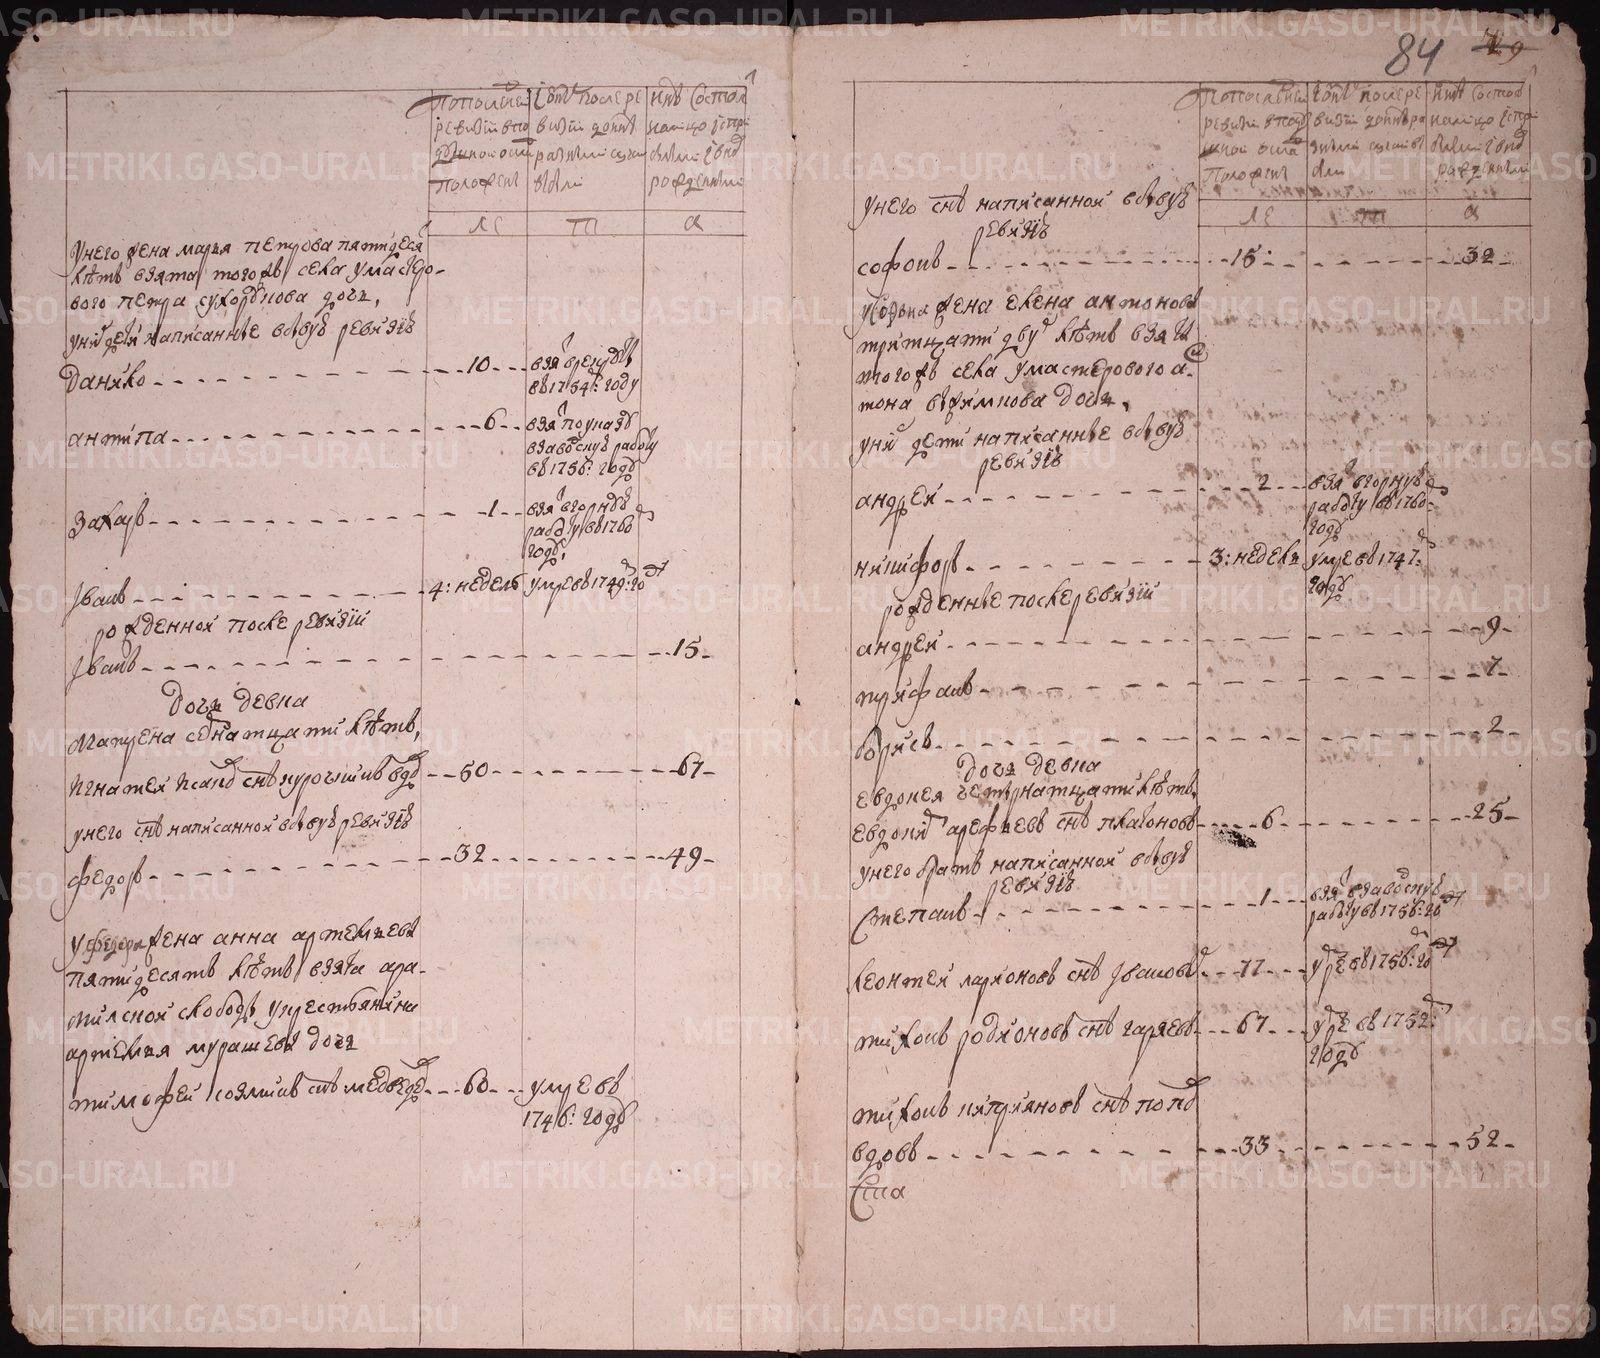 84
По последней ревизии в подушной оклад положены
Ис того после ревизии до ныне разными случаи выбыли
Ныне состоя налицо и с прибылыми и вновь рожденными
ле
т
а
У него жена марья петрова пятидеся
летъ взята того ж села у мастеро-
вого петра сукордiнова дочь,
у нiх дети написанные в бывшую ревизiю
данило
10
взят в рекруты
въ 1754: году
антипа
6
взят по указу
в заводскую работу
въ 1756: году
захаръ
1
взят в горную
работу въ 1760
году,
Iванъ
4: недель
умре въ 1749: году
рожденной после ревизiи
Iванъ
15
дочь девка
Матрена однатцати летъ,
игнатей исаков снъ курочкинъ вдов
50
67
у него снъ написанной в бывшую ревизiю
федоръ
32
49
у федора жена анна артемьева
пятидесятъ летъ взята ара-
мильской слободы у крестьянина
артемья мурашева дочь
тимофей козминъ снъ медведев
60
умре въ
1746: году
По последней ревизии в подушной оклад положены
Ис того после ревизии до ныне разными случаи выбыли
Ныне состоя налицо и с прибылыми и вновь рожденными
ле
т
а
у него снъ написанной в бывшую
ревизiю
софонъ
15
32
у софона жена елена антонова
тритцати двух летъ взята
того ж села у мастерового а-
тона ефимкова дочь,
у них дети написанные в бывшую
ревизiю
андрей
2
взят в горную
работу въ 1760
году
никифоръ
3: недель
умре въ 1747:
году
рожденные после ревизiи
андрей
9
трифанъ
7
борисъ
2
дочь девка
евдокея четырнатцати летъ,
евдоким арефьевъ снъ плато новъ
6
25
у него братъ написанной в бывшую
ревизiю
Степанъ
1
взят в заводскую
работу въ 1756: году
леонтей ларионовъ снъ Iвашов
77
умре въ 1756: году
тихонъ родионовъ снъ гаревъ
67
умре въ 1752:
году
тихонъ киприяновъ снъ попов
вдовъ
33
52